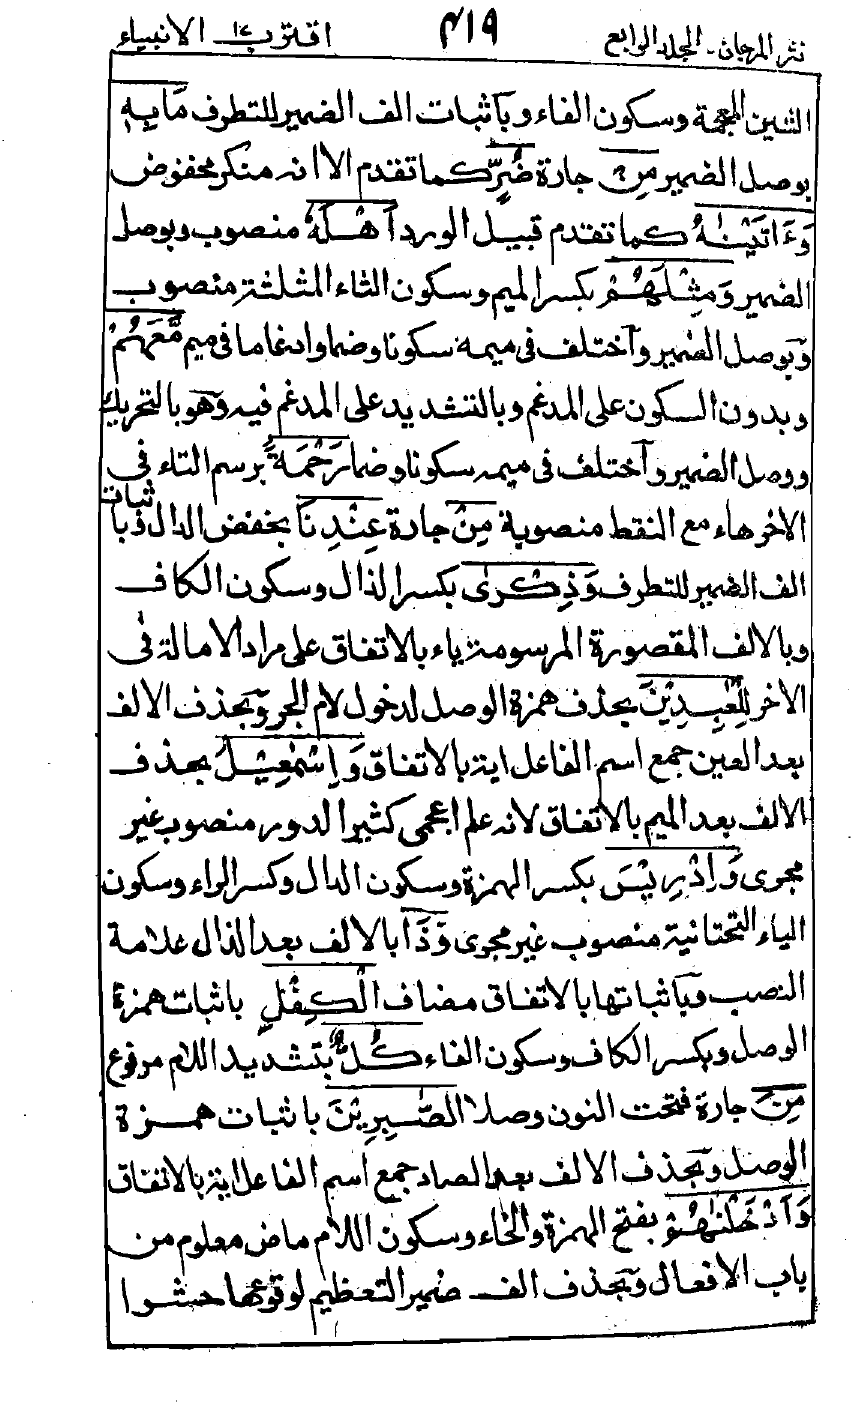 نثر المرجان۔ المجلد الرابع ٤١٩ اقترب ١٧ الانبياء
الشين المعجمة وسكون الفاء وبآثبات الف الضمير للتطرف مَا بِهٖ
بوصل الضمير مِنْ جارة ضُرٍّ كما تقدم الا انه منكر مخفوض
وَءَاتَيْنٰهُ كما تقدم قبيل الورد اَهْلَهٗ منصوب وبوصل
الضمير وَمِثْلَهُمْ بكسر الميم وسكون الثاء المثلثة منصوب
وَبوصل الضمير وآختلف فى ميمه سكونا وضما وادغاما فى ميم مَّعَهُمْ
وبدون السكون على المدغم وبالتشديد على المدغم فيه وَهو بالتحريك
ووصل الضمير وآختلف فى ميمه سكونا وضما رَحْمَةً برسم التاء فى
الاخر هاء مع النقط منصوبة مِنْ جارة عِنْدِنَا بخفض الدال وباثبات
الف الضمير للتطرف وَذِكْرٰى بكسر الذال وسكون الكاف
وبالالف المقصورة المرسومة ياء بالاتفاق على مراد الامالة فى
الاخر لِلْعٰبِدِيْنَ بحذف همزة الوصل لدخول لام الجر وَبحذف الالف
بعد العين جمع اسم الفاعل اية بالاتفاق وَاِسْمٰعِيْلَ بحذف
الالف بعد الميم بالاتفاق لانه علم اعجمى كثير الدور منصوب غير
مجرى وَاِدْرِيْسَ بكسر الهمزة وسكون الدال وكسر الراء وسكون
الياء التحتانية منصوب غير مجرى وَذَا بالالف بعد الذال علامة
النصب وبآثباتها بالاتفاق مضاف الْكِفْلِ باثبات همزة
الوصل وبكسر الكاف وسكون الفاء كُلٌّ بتشديد اللام مرفوع
مِنَ جارة فتحت النون وصلا الصّٰبِرِيْنَ باثبات همزة
الوصل وبحذف الالف بعد الصاد جمع اسم الفاعل اية بالاتفاق
وَاَدْخَلْنٰهُمْ بفتح الهمزة والخاء وسكون اللام ماض معلوم من
باب الافعال وَبحذف الف ضمير التعظيم لوقوعها حشوا